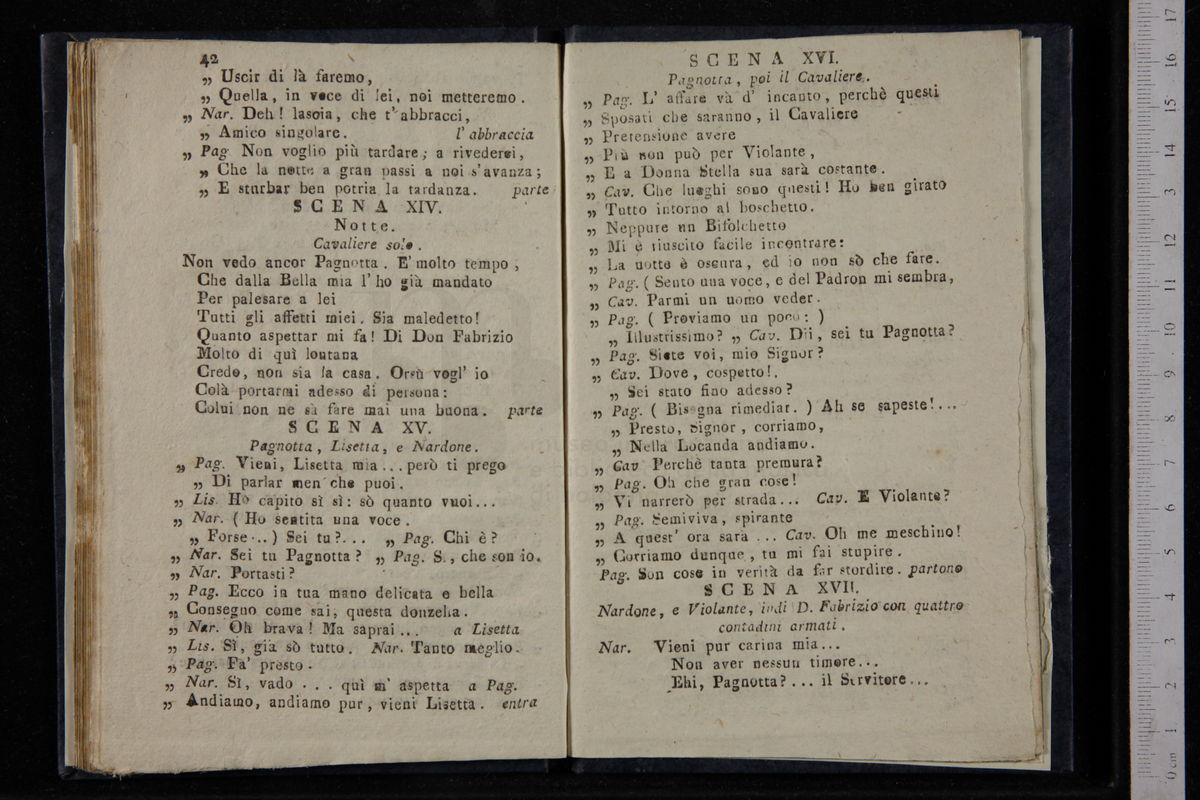 42
„ Uscir di là faremo,
„ Quella, in vece di lei, noi metteremo.
„ Nar. Deh! lascia, che t'abbracci,
„ Amico singolare. l'abbraccia
„ Pag. Non voglio più tardare; a rivederci,
„ Che la notte a gran passi a noi s'avanza;
„ E sturbar ben potria la tardanza. parte
SCENA XIV.
Notte.
Cavaliere solo.
Non vedo ancor Pagnotta. E' molto tempo,
Che dalla Bella mia l'ho già mandato
Per palesare a lei
Tutti gli affetti miei. Sia maledetto!
Quanto aspettar mi fa! Di Don Fabrizio
Molto di quì lontana
Credo, non sia la casa. Orsù vogl' io
Colà portarmi adesso di persona:
Colui non ne sa fare mai una buona. parte
SCENA XV.
Pagnotta, Lisetta, e Nardone.
„ Pag. Vieni, Lisetta mia... però ti prego
„ Di parlar men che puoi.
„ Lis. Ho capito sì sì: sò quanto vuoi...
„ Nar. (Ho sentita una voce.
„ Forse...) Sei tu?... „ Pag. Chi è?
„ Nar. Sei tu Pagnotta? „ Pag. Sì, che son io.
„ Nar. Portasti?
„ Pag. Ecco in tua mano delicata e bella
„ Consegno come sai, questa donzella.
„ Nar. Oh brava! Ma saprai... a Lisetta
„ Lis. Sì, già sò tutto. Nar. Tanto meglio.
„ Pag. Fa' presto.
„ Nar. Sì, vado ... quì m' aspetta a Pag.
„ Andiamo, andiamo pur, vieni Lisetta. entra
SCENA XVI.
Pagnotta, poi il Cavaliere.
„ Pag. L' affare và d' incanto, perchè questi
„ Sposati che saranno, il Cavaliere
„ Pretensione avere
„ Più non può per Violante,
„ E a Donna Stella sua sarà costante.
„ Cav. Che luoghi sono questi! Ho ben girato
„ Tutto intorno al boschetto.
„ Neppure un Bifolchetto
„ Mi è riuscito facile incontrare:
„ La notte è oscura, ed io non sò che fare.
„ Pag. (Sento una voce, e del Padron mi sembra,
„ Cav. Parmi un uomo veder.
„ Pag. (Proviamo un poco:)
„ Illustrissimo? „ Cav. Dii, sei tu Pagnotta?
„ Pag. Siete voi, mio Signor?
„ Cav. Dove, cospetto!,
„ Sei stato fino adesso?
„ Pag. (Bisogna rimediar.) Ah se sapeste!...
„ Presto, Signor, corriamo,
„ Nella Locanda andiamo.
„ Cav Perchè tanta premura?
„ Pag. Oh che gran cose!
„ Vi narrerò per strada... Cav. E Violante?
„ Pag. Semiviva, spirante
„ A quest' ora sarà ... Cav. Oh me meschino!
„ Corriamo dunque, tu mi fai stupire.
Pag. Son cose in verità da far stordire. partono
SCENA XVII.
Nardone, e Violante, indi D. Fabrizio con quattro
contadini armati.
Nar. Vieni pur carina mia...
Non aver nessun timore...
Ehi, Pagnotta?... il Servitore...
0 cm 1 2 3 4 5 6 7 8 9 10 11 12 13 14 15 16 17